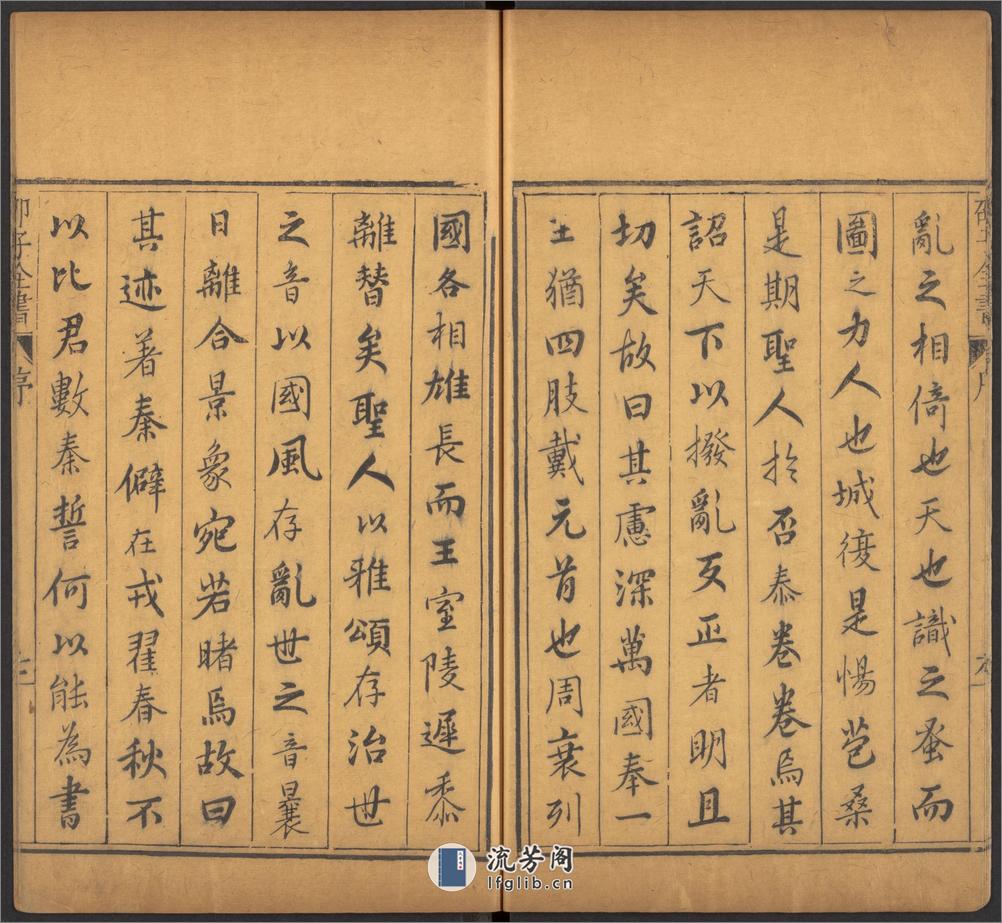 亂之相倚也天也識之蚤而
圖之力人也城復是惕苞桑
是期聖人於否泰卷卷焉其
詔天下以撥亂反正者明且
切矣故曰其慮深萬國奉一
王猶四肢戴元首也周衰列
國各相雄長而王室陵遲黍
離替矣聖人以雅頌存治世
之音以國風存亂世之音曩
日離合景象宛若睹焉故曰
其迹著秦僻在戎翟春秋不
以比君數秦誓何以能為書
邵子全書
序
流芳阁
lfglib.cn